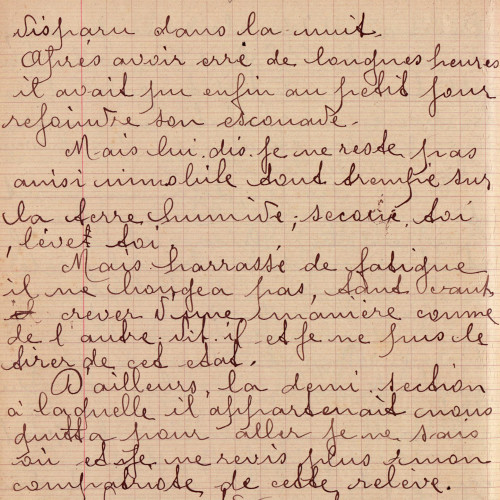 disparu dans la nuit.
Après avoir erré de longues heures
il avait pu enfin au petit jour
rejoindre son escouade.
Mais lui dis-je ne reste pas
ainsi immobile tout trempé sur
la terre humide, secoue toi
, lèvet toi.
Mais harrassé de fatigue
il ne bougea pas, tant vaut
crever d'une manière comme
de l'autre dit-il et je ne pus le
tirer de cet etat.
D'ailleurs, la demi-section
à laquelle il appartenait nous
quitta pour aller je ne sais
où et je ne revis plus mon
compatriote de cette relève.